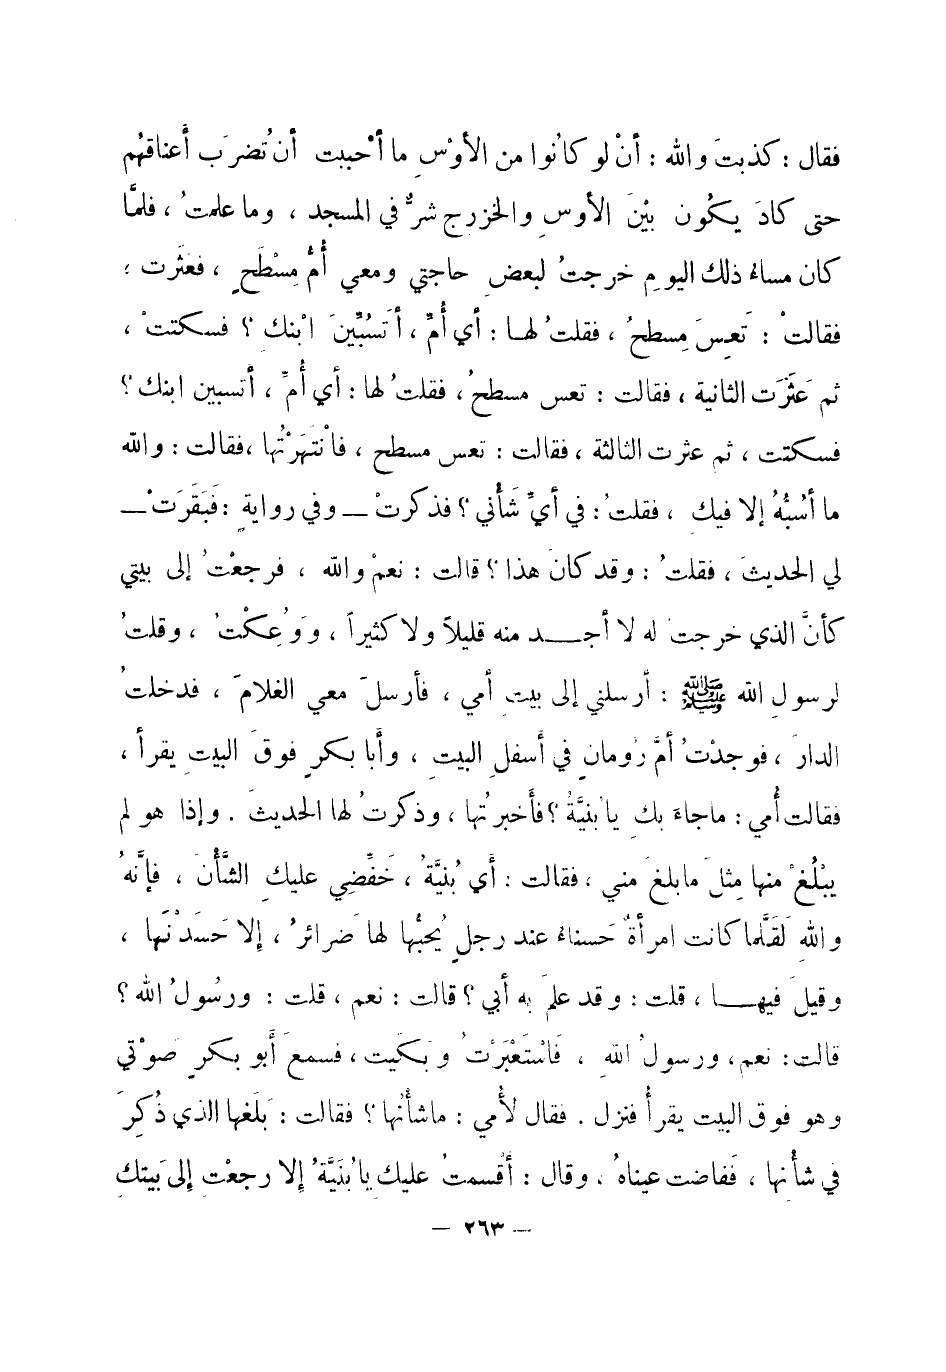 فقال : كذبتَ والله : أنْ لو كانُوا من الأوْسِ ما أحْببت أن تُضرَب أعناقهُم
حتى كادَ يكُون بيْنَ الأوسِ والخزرج شرٌّ في المسجد ، وما علمتُ ، فلمَّا
كان مساءُ ذلك اليومِ خرجتُ لبعضِ حاجتي ومعي أُمُّ مِسْطَحٍ ، فعَثَرت ؛
فقالتْ : تَعِسَ مِسطحُ ، فقلتُ لهـا : أي أُمِّ ، أتَسُبِّينَ ابْنك ؟ فسكتتْ ،
ثم عَثَرَت الثانية ، فقالت : تعس مسطحُ ، فقلتُ لها : أي أُمِّ ، أتسبين ابنك ؟
فسكتت ، ثم عثرت الثالثة ، فقالت : تعس مسطح ، فانْتهَرْتُها ، فقالت : والله
ما أسُبُّهُ إلا فيك ، فقلتُ : في أيِّ شَأْني ؟ فذكرتْ — وفي روايةٍ : فَبَقَرَتْ —
لي الحديثَ ، فقلتُ : وقد كانَ هذا ؟ قالت : نعمْ والله ، فرجعْتُ إلى بيتي
كأنَّ الذي خرجتُ له لا أجـــد منه قليلاً ولا كثيراً ، ووُعِكْتُ ، وقلتُ
لرسولِ الله ﷺ : أرسلني إلى بيتِ أمي ، فأرسلَ معي الغلامَ ، فدخلتُ
الدارَ ، فوجدْتُ أمَّ رُومانٍ في أسفلِ البيتِ ، وأبا بكرٍ فوقَ البيتِ يقرأ ،
فقالت أُمي : ماجاءَ بكِ يابُنيَّةُ ؟ فأَخبرتُها ، وذكرتُ لها الحديثَ . وإذا هو لم
يبْلُغْ منها مِثلَ مابلغَ مني ، فقالت : أي بُنيَّةُ ، خَفِّضِي عليكِ الشَّأْنَ ، فإنَّهُ
واللهِ لَقَلَّما كانت امرأةٌ حَسناءُ عند رجلٍ يُحبُّها لها ضَرائرُ ، إلا حَسَدْنَها ،
وقيلَ فيهـــا ، قلت : وقد علمَ به أبي ؟ قالت : نعم ، قلت : ورسُولُ الله ؟
قالت : نعم ، ورسولُ اللهِ ، فَاسْتَعْبَرْتُ وبَكيت ، فسمعَ أبو بكرٍ صَوْتي
وهو فوق البيت يقرأُ فنزل . فقال لأُمي : ماشأْنُها ؟ فقالت : بَلَغها الذي ذُكِرَ
في شأْنها ، فَفاضت عيناهُ ، وقال : أقسمتُ عليك يابُنَيَّةُ إلا رجعْت إلى بَيتك
— ٢٦٣ —